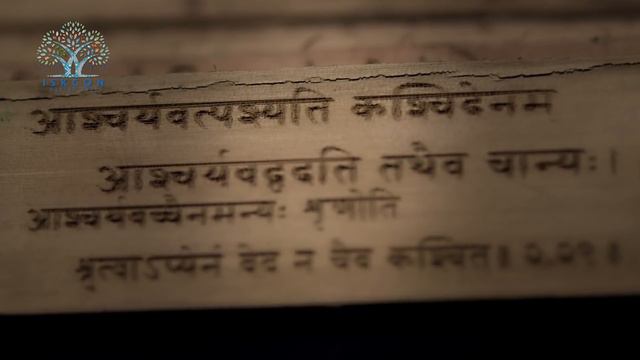 ISKCON
आश्चर्यवत्पश्यति कश्चिदेनम
आश्चर्यवद्वदति तथैव चान्यः।
आश्चर्यवच्चैनमन्यः शृणोति
श्रुत्वाऽप्येनं वेद न चैव कश्चित॥ २.२९॥